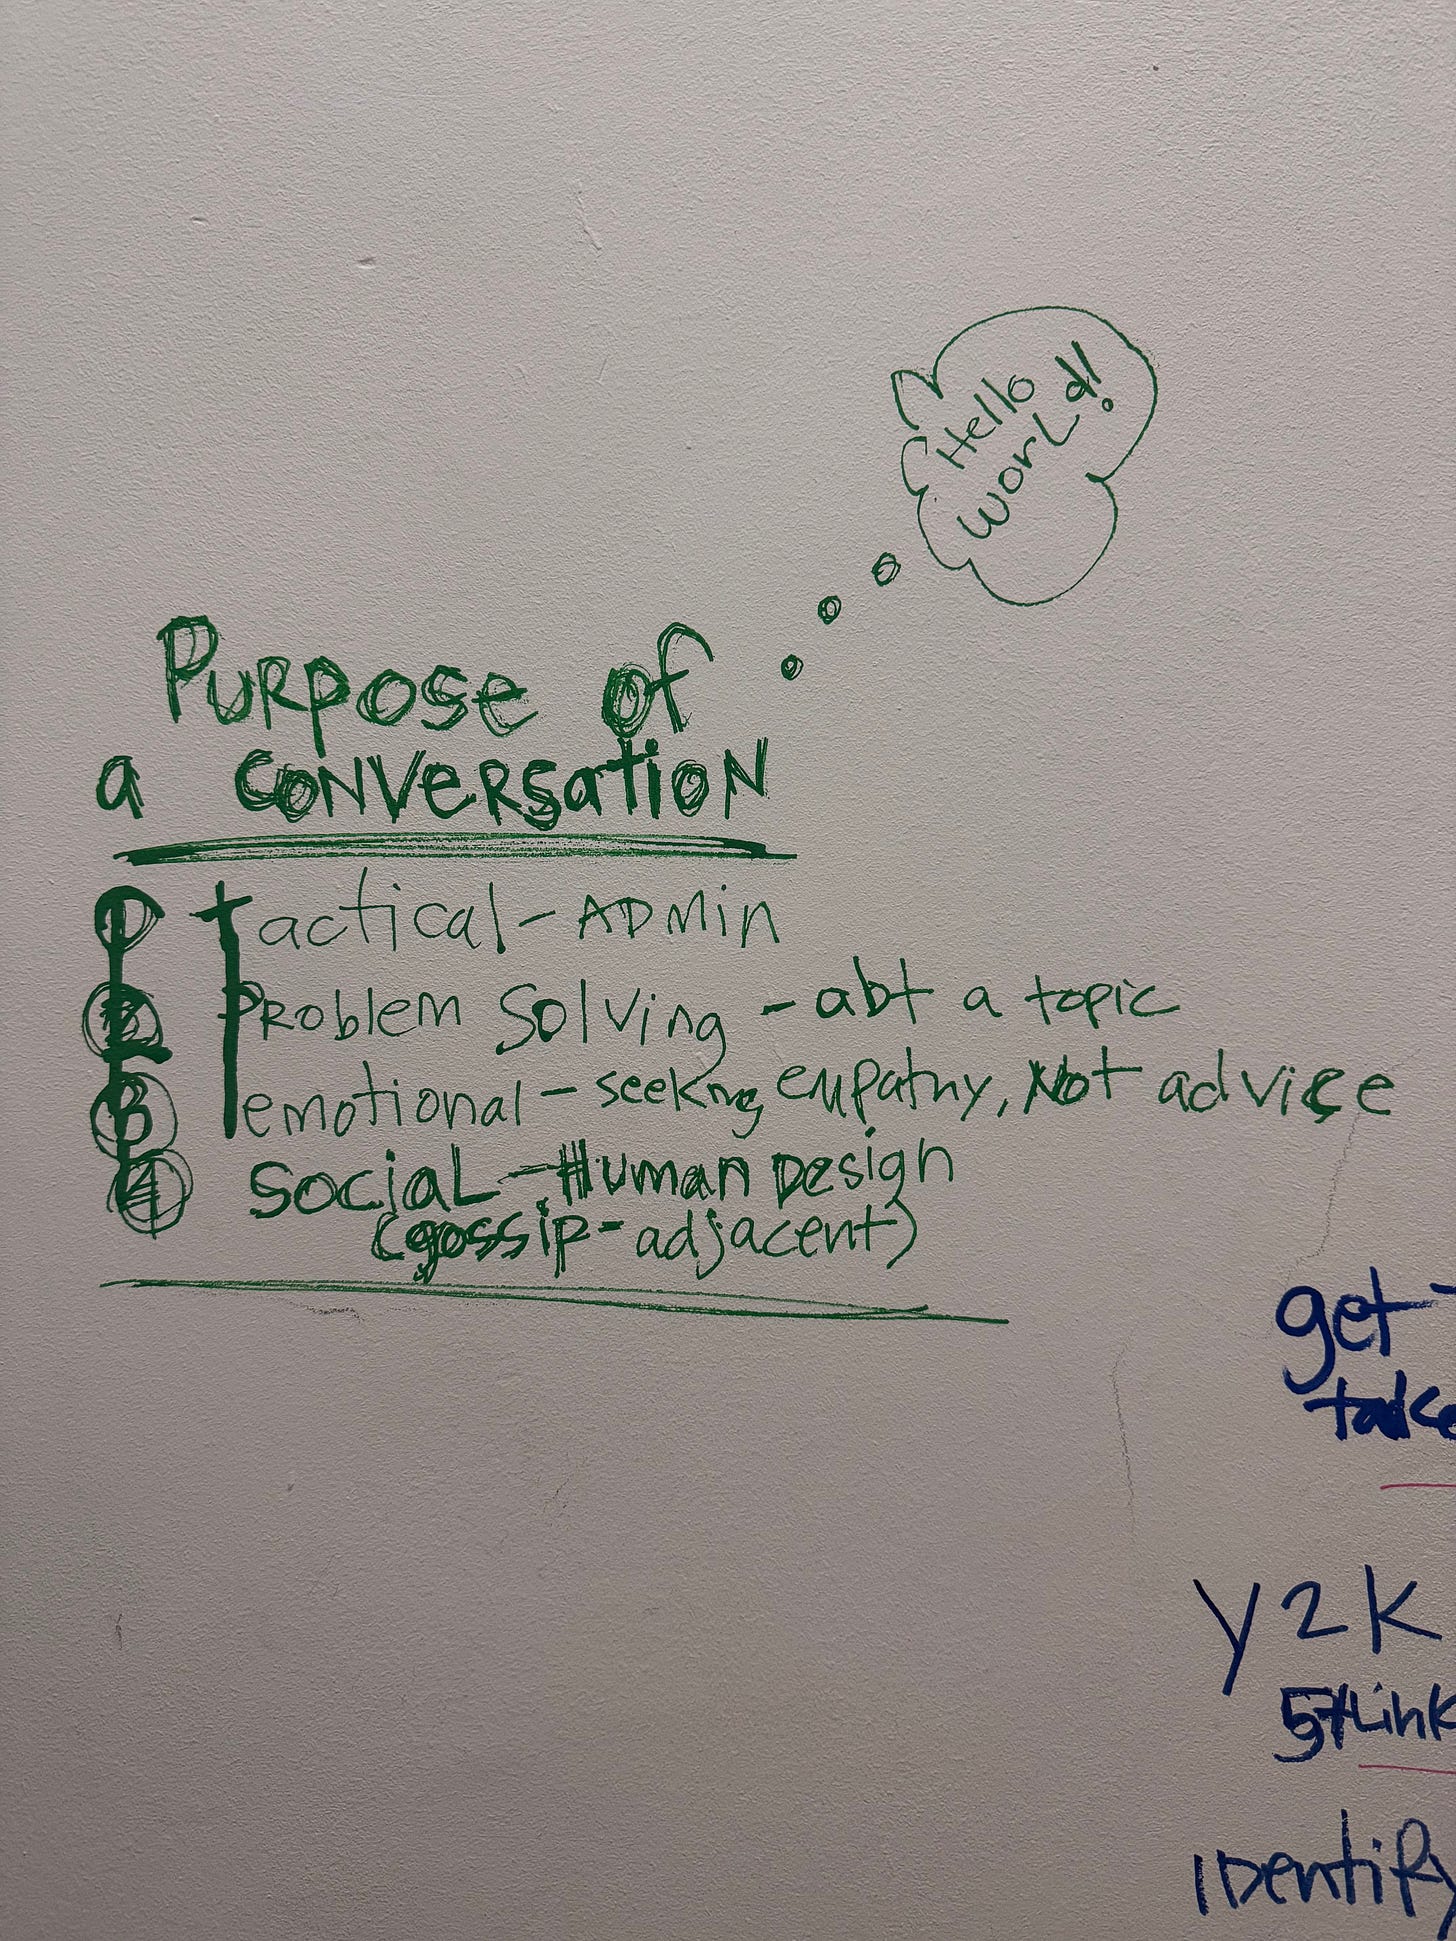 Hello
World!
Purpose of
a conversation
1 Tactical - Admin
2 Problem Solving - abt a topic
3 emotional - seeking empathy, Not advice
4 Social - Human Design
(gossip-adjacent)
get
Y2K
Identify